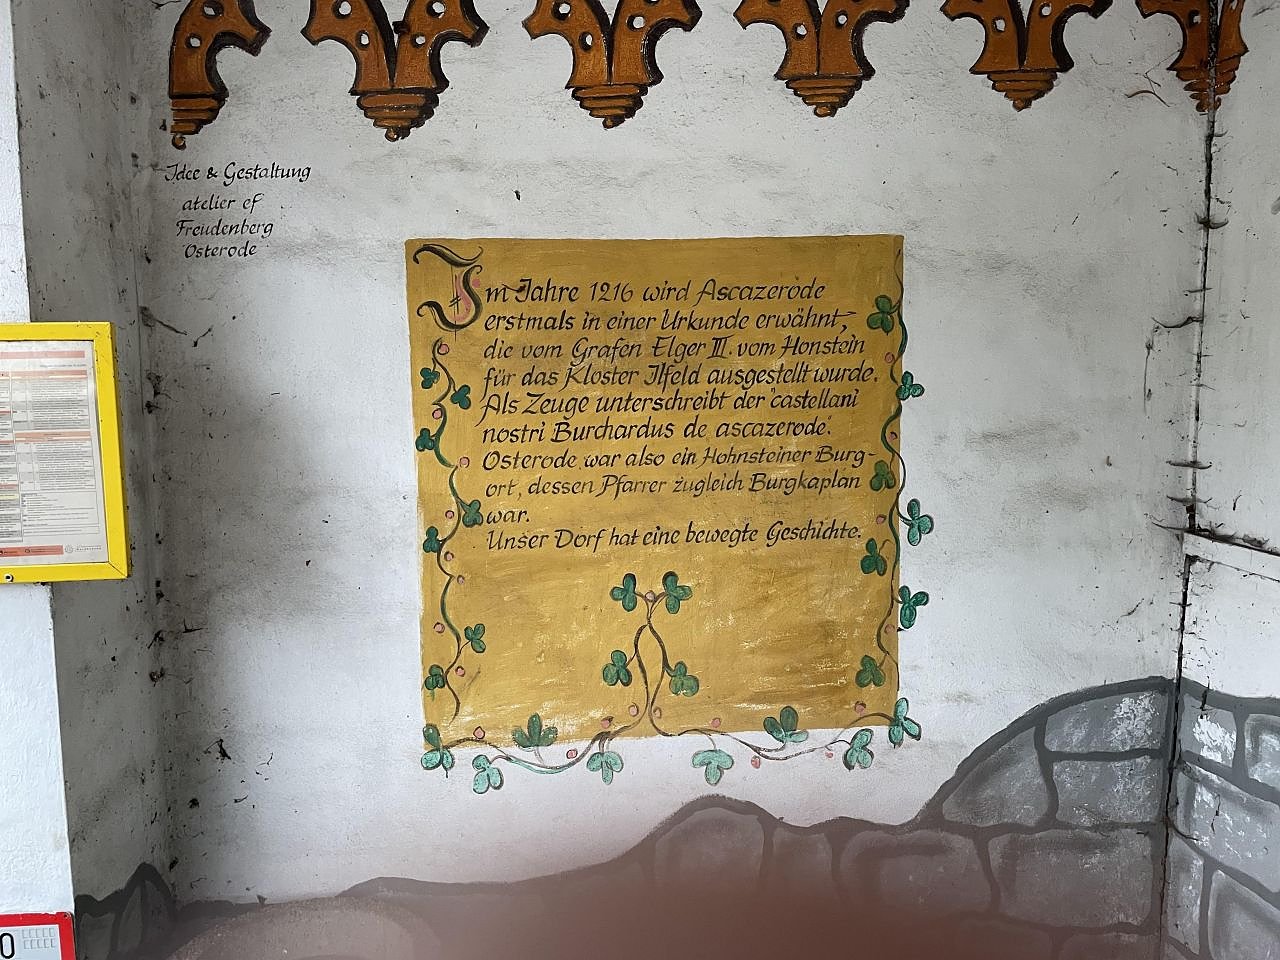 Idee & Gestaltung
atelier ef
Freudenberg
Osterode
Im Jahre 1216 wird Ascazerode
erstmals in einer Urkunde erwähnt,
die vom Grafen Elger III. vom Honstein
für das Kloster Ilfeld ausgestellt wurde.
Als Zeuge unterschreibt der "castellani
nostri Burchardus de ascazerode".
Osterode war also ein Hohnsteiner Burg-
ort, dessen Pfarrer zugleich Burgkaplan
war.
Unser Dorf hat eine bewegte Geschichte.